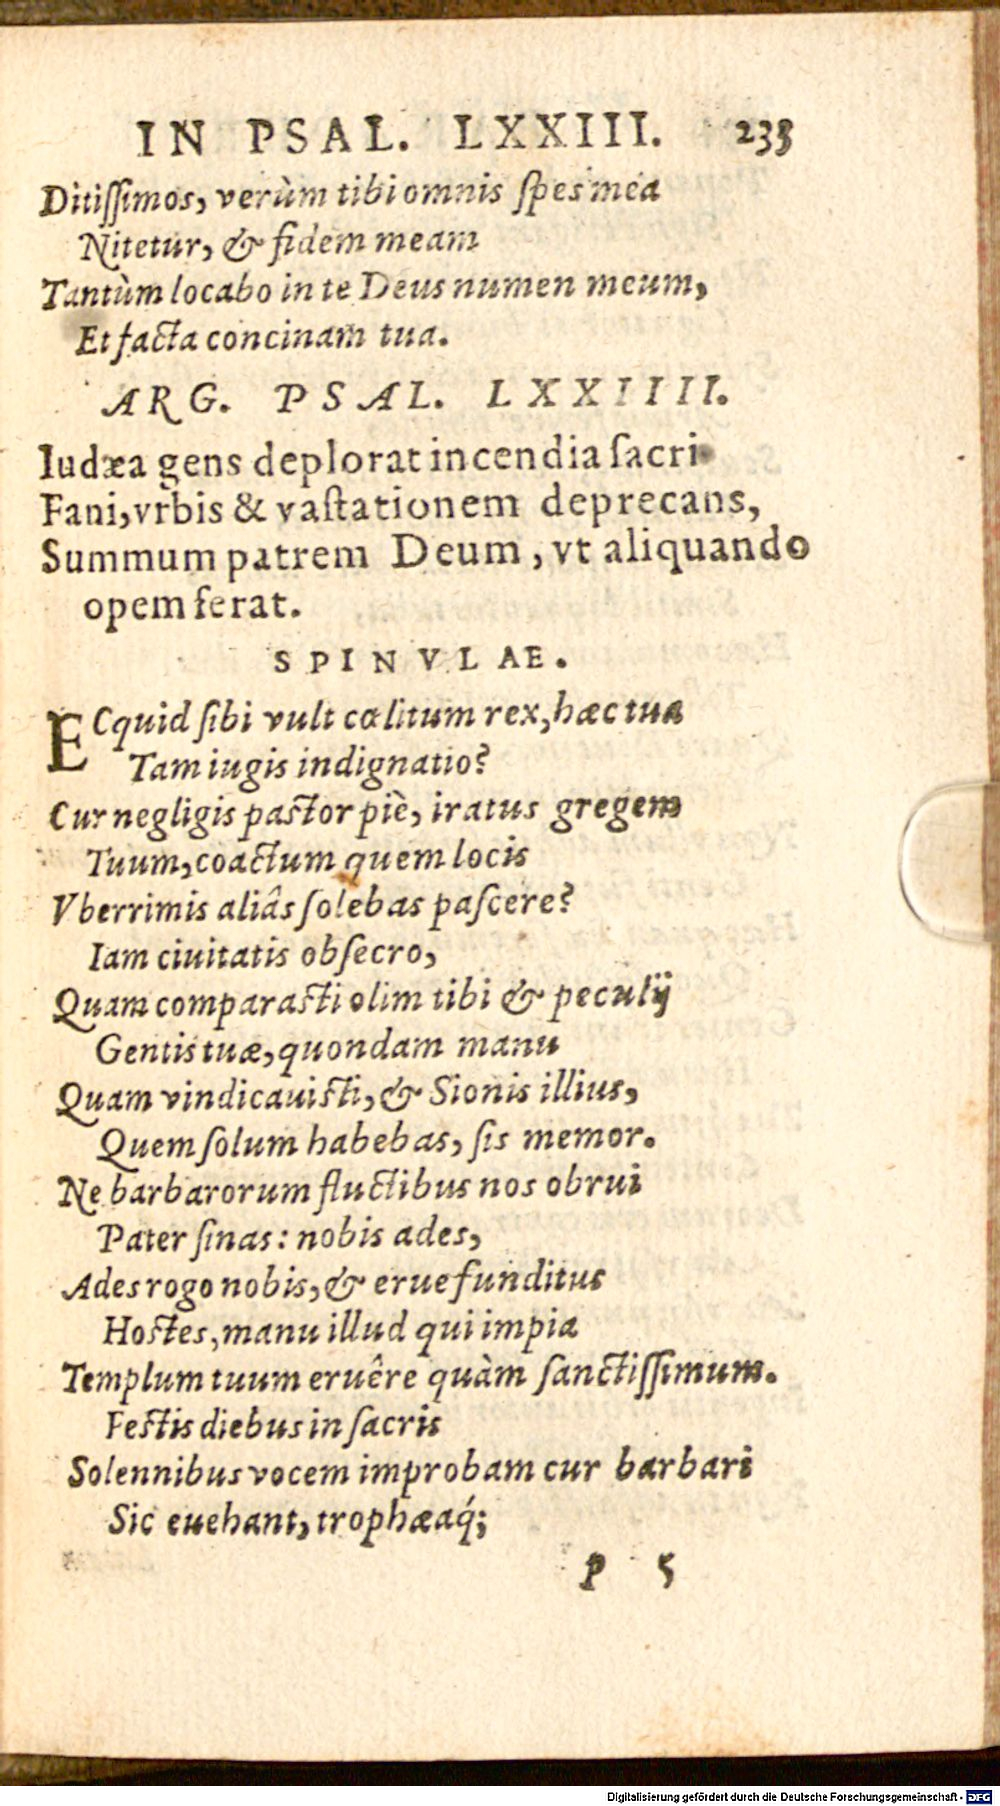 IN PSAL. LXXIII. 233
Ditißimos, verùm tibi omnis spes mea
Nitetur, & fidem meam
Tantùm locabo in te Deus numen meum,
Et facta concinam tua.
ARG. PSAL. LXXIIII.
Iudæa gens deplorat incendia sacri
Fani, vrbis & vastationem deprecans,
Summum patrem Deum, vt aliquando
opem ferat.
SPINVLAE.
ECquid sibi vult cœlitum rex, hæc tua
Tam iugis indignatio?
Cur negligis pastor piè, iratus gregem
Tuum, coactum quem locis
Vberrimis aliâs solebas pascere?
Iam ciuitatis obsecro,
Quam comparasti olim tibi & peculij
Gentis tuæ, quondam manu
Quam vindicauisti, & Sionis illius,
Quem solum habebas, sis memor.
Ne barbarorum fluctibus nos obrui
Pater sinas: nobis ades,
Ades rogo nobis, & erue funditus
Hostes, manu illud qui impia
Templum tuum eruêre quàm sanctißimum.
Festis diebus in sacris
Solennibus vocem improbam cur barbari
Sic euehant, trophæaq́;
P 5
Digitalisierung gefördert durch die Deutsche Forschungsgemeinschaft - DFG